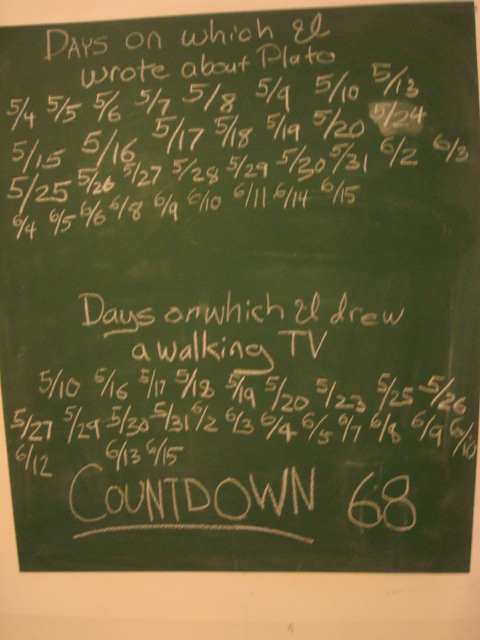 DAYS on which I
wrote about Plato
5/4 5/5 5/6 5/7 5/8 5/9 5/10 5/13
5/15 5/16 5/17 5/18 5/19 5/20 5/24
5/25 5/26 5/27 5/28 5/29 5/30 5/31 6/2 6/3
6/4 6/5 6/6 6/8 6/9 6/10 6/11 6/14 6/15
Days on which I drew
a walking TV
5/10 5/16 5/17 5/18 5/19 5/20 5/23 5/25 5/26
5/27 5/29 5/30 5/31 6/2 6/3 6/4 6/5 6/7 6/8 6/9 6/10
6/12 6/13 6/15
COUNTDOWN 68